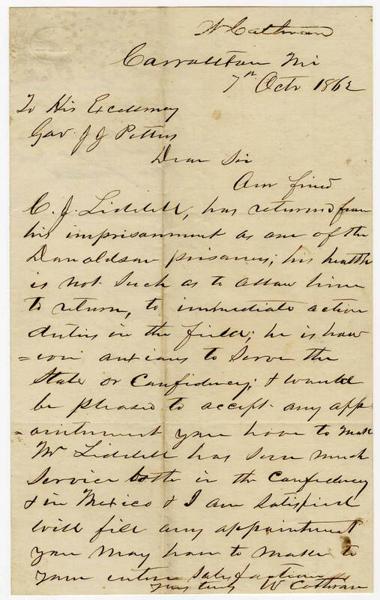 W Cothran
Carrollton Mi
7th Octr 1862
To His Excelency
Gov J J Pettus
Dear Sir
Our friend
C. J. Liddell, has returned from
his imprisonment as one of the
Donaldson prisoners; his health
is not such as to allow him
to return, to immediate active
duties in the field; he is how
=ever anxious to serve the
State or Confidency; & would
be pleased to accept any app
=ointment you have to make
Mr Liddell has seen much
service both in the Confidency
& in Mexico & I am satisfied
will fill any appointment
you may have to make to
your entire satisfaction
yours truly W Cothran